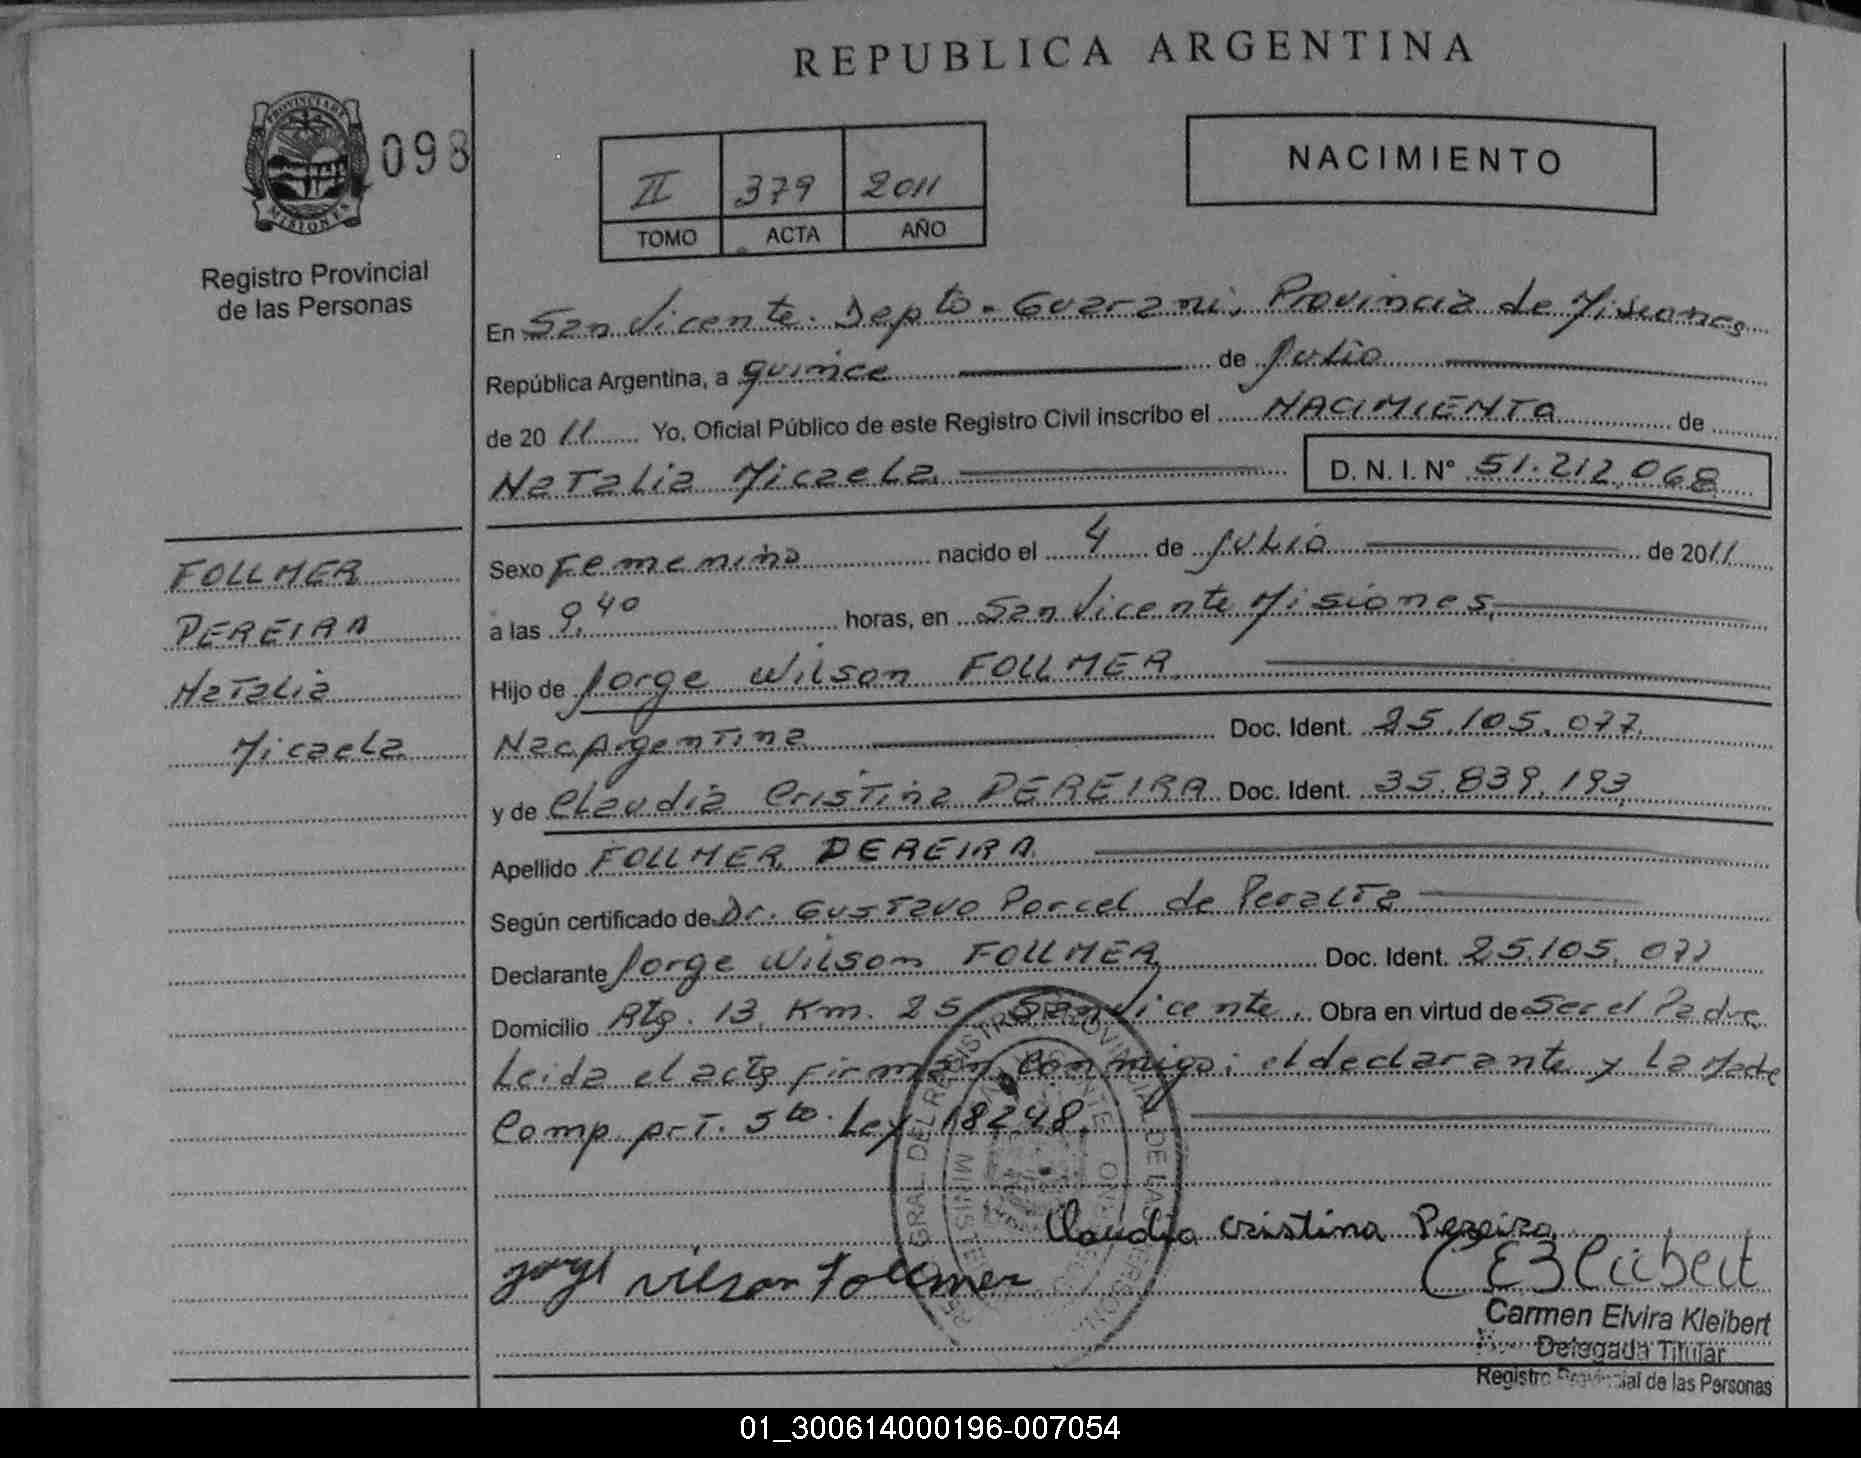 REPUBLICA ARGENTINA
PROVINCIA DE
MISIONES
098
Registro Provincial
de las Personas
II 379 2011
TOMO ACTA AÑO
NACIMIENTO
En San Vicente. Depto. Guarani, Provincia de Misiones
República Argentina, a quince de Julio
de 2011 Yo, Oficial Público de este Registro Civil inscribo el NACIMIENTO de
Natalia Micaela D. N. I. N° 51.212.068
FOLLMER
PEREIRA
Natalia
Micaela
Sexo Femenino nacido el 4 de Julio de 2011
a las 9,40 horas, en San Vicente Misiones
Hijo de Jorge Wilson FOLLMER
Nac Argentina Doc. Ident. 25.105.077
y de Claudia Cristina PEREIRA Doc. Ident. 35.839.193
Apellido FOLLMER PEREIRA
Según certificado de Dr. Gustavo Porcel de Peralta
Declarante Jorge Wilson FOLLMER Doc. Ident. 25.105.077
Domicilio Rta. 13 Km. 25 San Vicente. Obra en virtud de Ser el Padre
Leida el acta firman conmigo: el declarante y la Madre
Comp. prt. 5to. Ley 18248.
Claudia Cristina Pereira
Jorge Wilson Follmer
Carmen Elvira Kleibert
Delegada Titular
Registro Provincial de las Personas
01_300614000196-007054